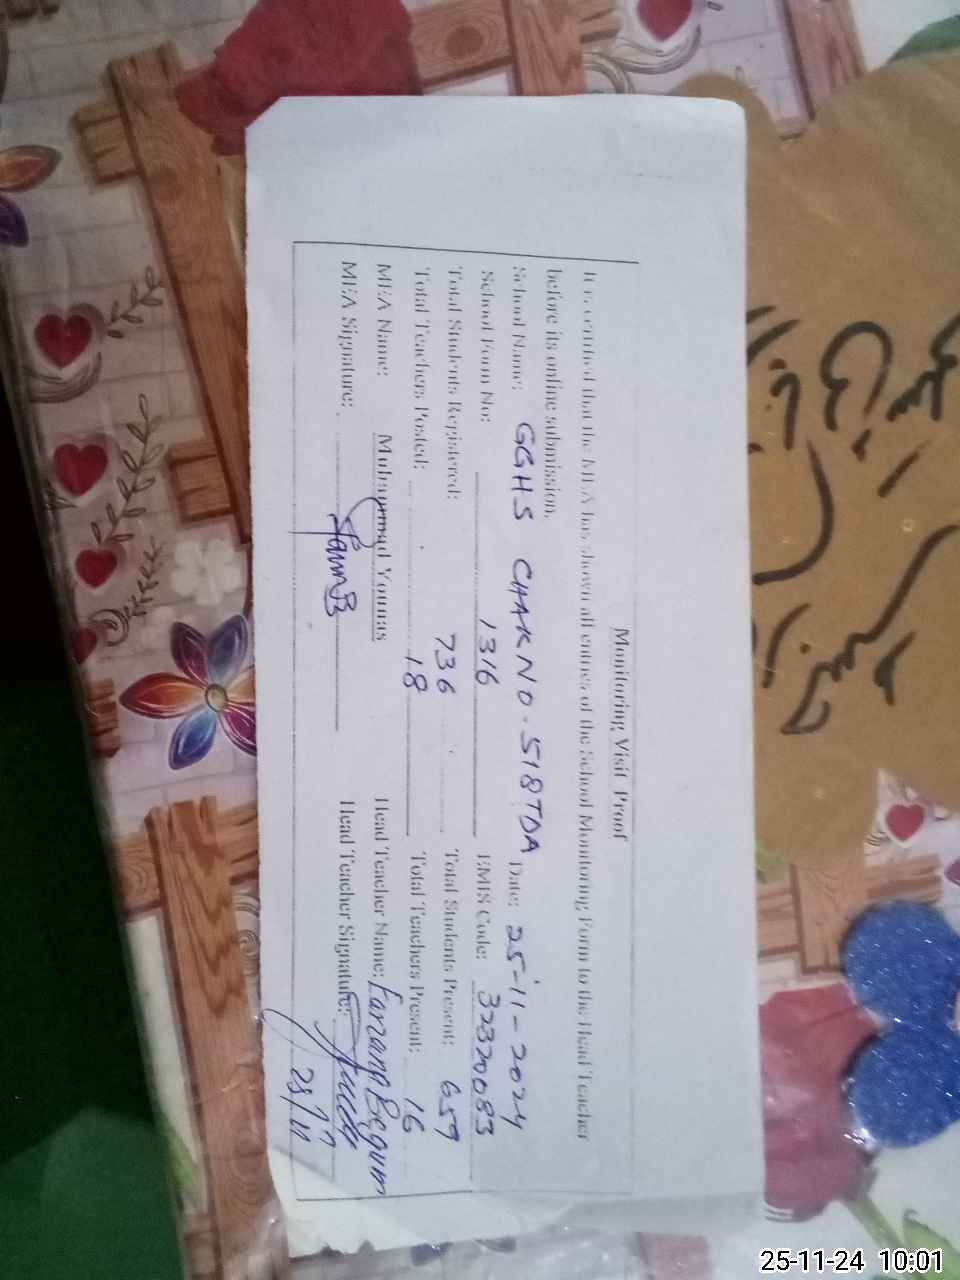 Monitoring Visit Proof
It is certified that the MEA has shown all entries of the School Monitoring Form to the Head Teacher
before its online submission.
School Name: GGHS CHAK NO. 518TDA Date: 25-11-2024
School Form No: 1316 EMIS Code: 32320083
Total Students Registered: 736 Total Students Present: 659
Total Teachers Posted: 18 Total Teachers Present: 16
MEA Name: Muhammad Younas Head Teacher Name: Farzana Begum
MEA Signature: Head Teacher Signature:
25/11
25-11-24 10:01